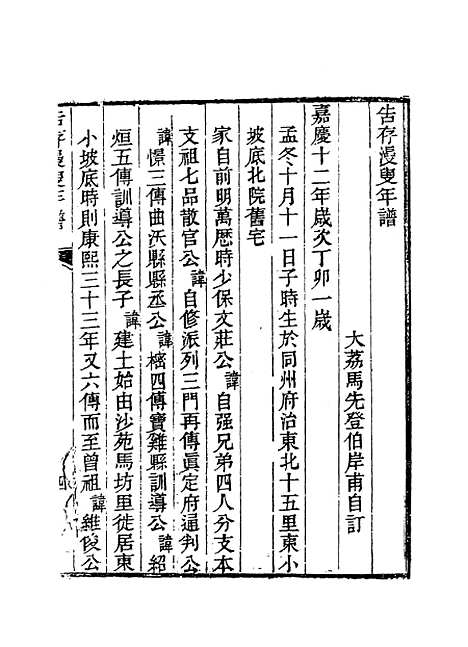 告存漫叟年譜
大荔馬先登伯岸甫自訂
嘉慶十二年歲次丁卯一歲
孟冬十月十一日子時生於同州府治東北十五里東小
坡底北院舊宅
家自前明萬歷時少保文莊公諱自强兄弟四人分支本
支祖七品散官公諱自修派列三門再傳眞定府通判公
諱憬三傳曲沃縣縣丞公諱樒四傳寶雞縣訓導公諱紹
烜五傳訓導公之長子諱建土始由沙苑馬坊里徙居東
小坡底時則康熙三十三年又六傳而至曾祖諱維俊公
告存漫叟年譜